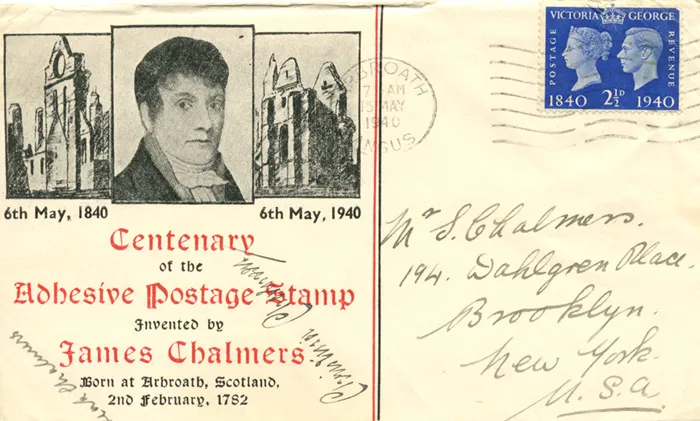 6th May, 1840
6th May, 1940
Centenary
of the
Adhesive Postage Stamp
Invented by
James Chalmers
Born at Arbroath, Scotland,
2nd February, 1782
Chalmers
ARBROATH
7 AM
15 MAY
1940
ANGUS
VICTORIA GEORGE
POSTAGE
REVENUE
1840 2½D 1940
Mr S. Chalmers.
194. Dahlgren Place.
Brooklyn.
New York.
U.S.A.